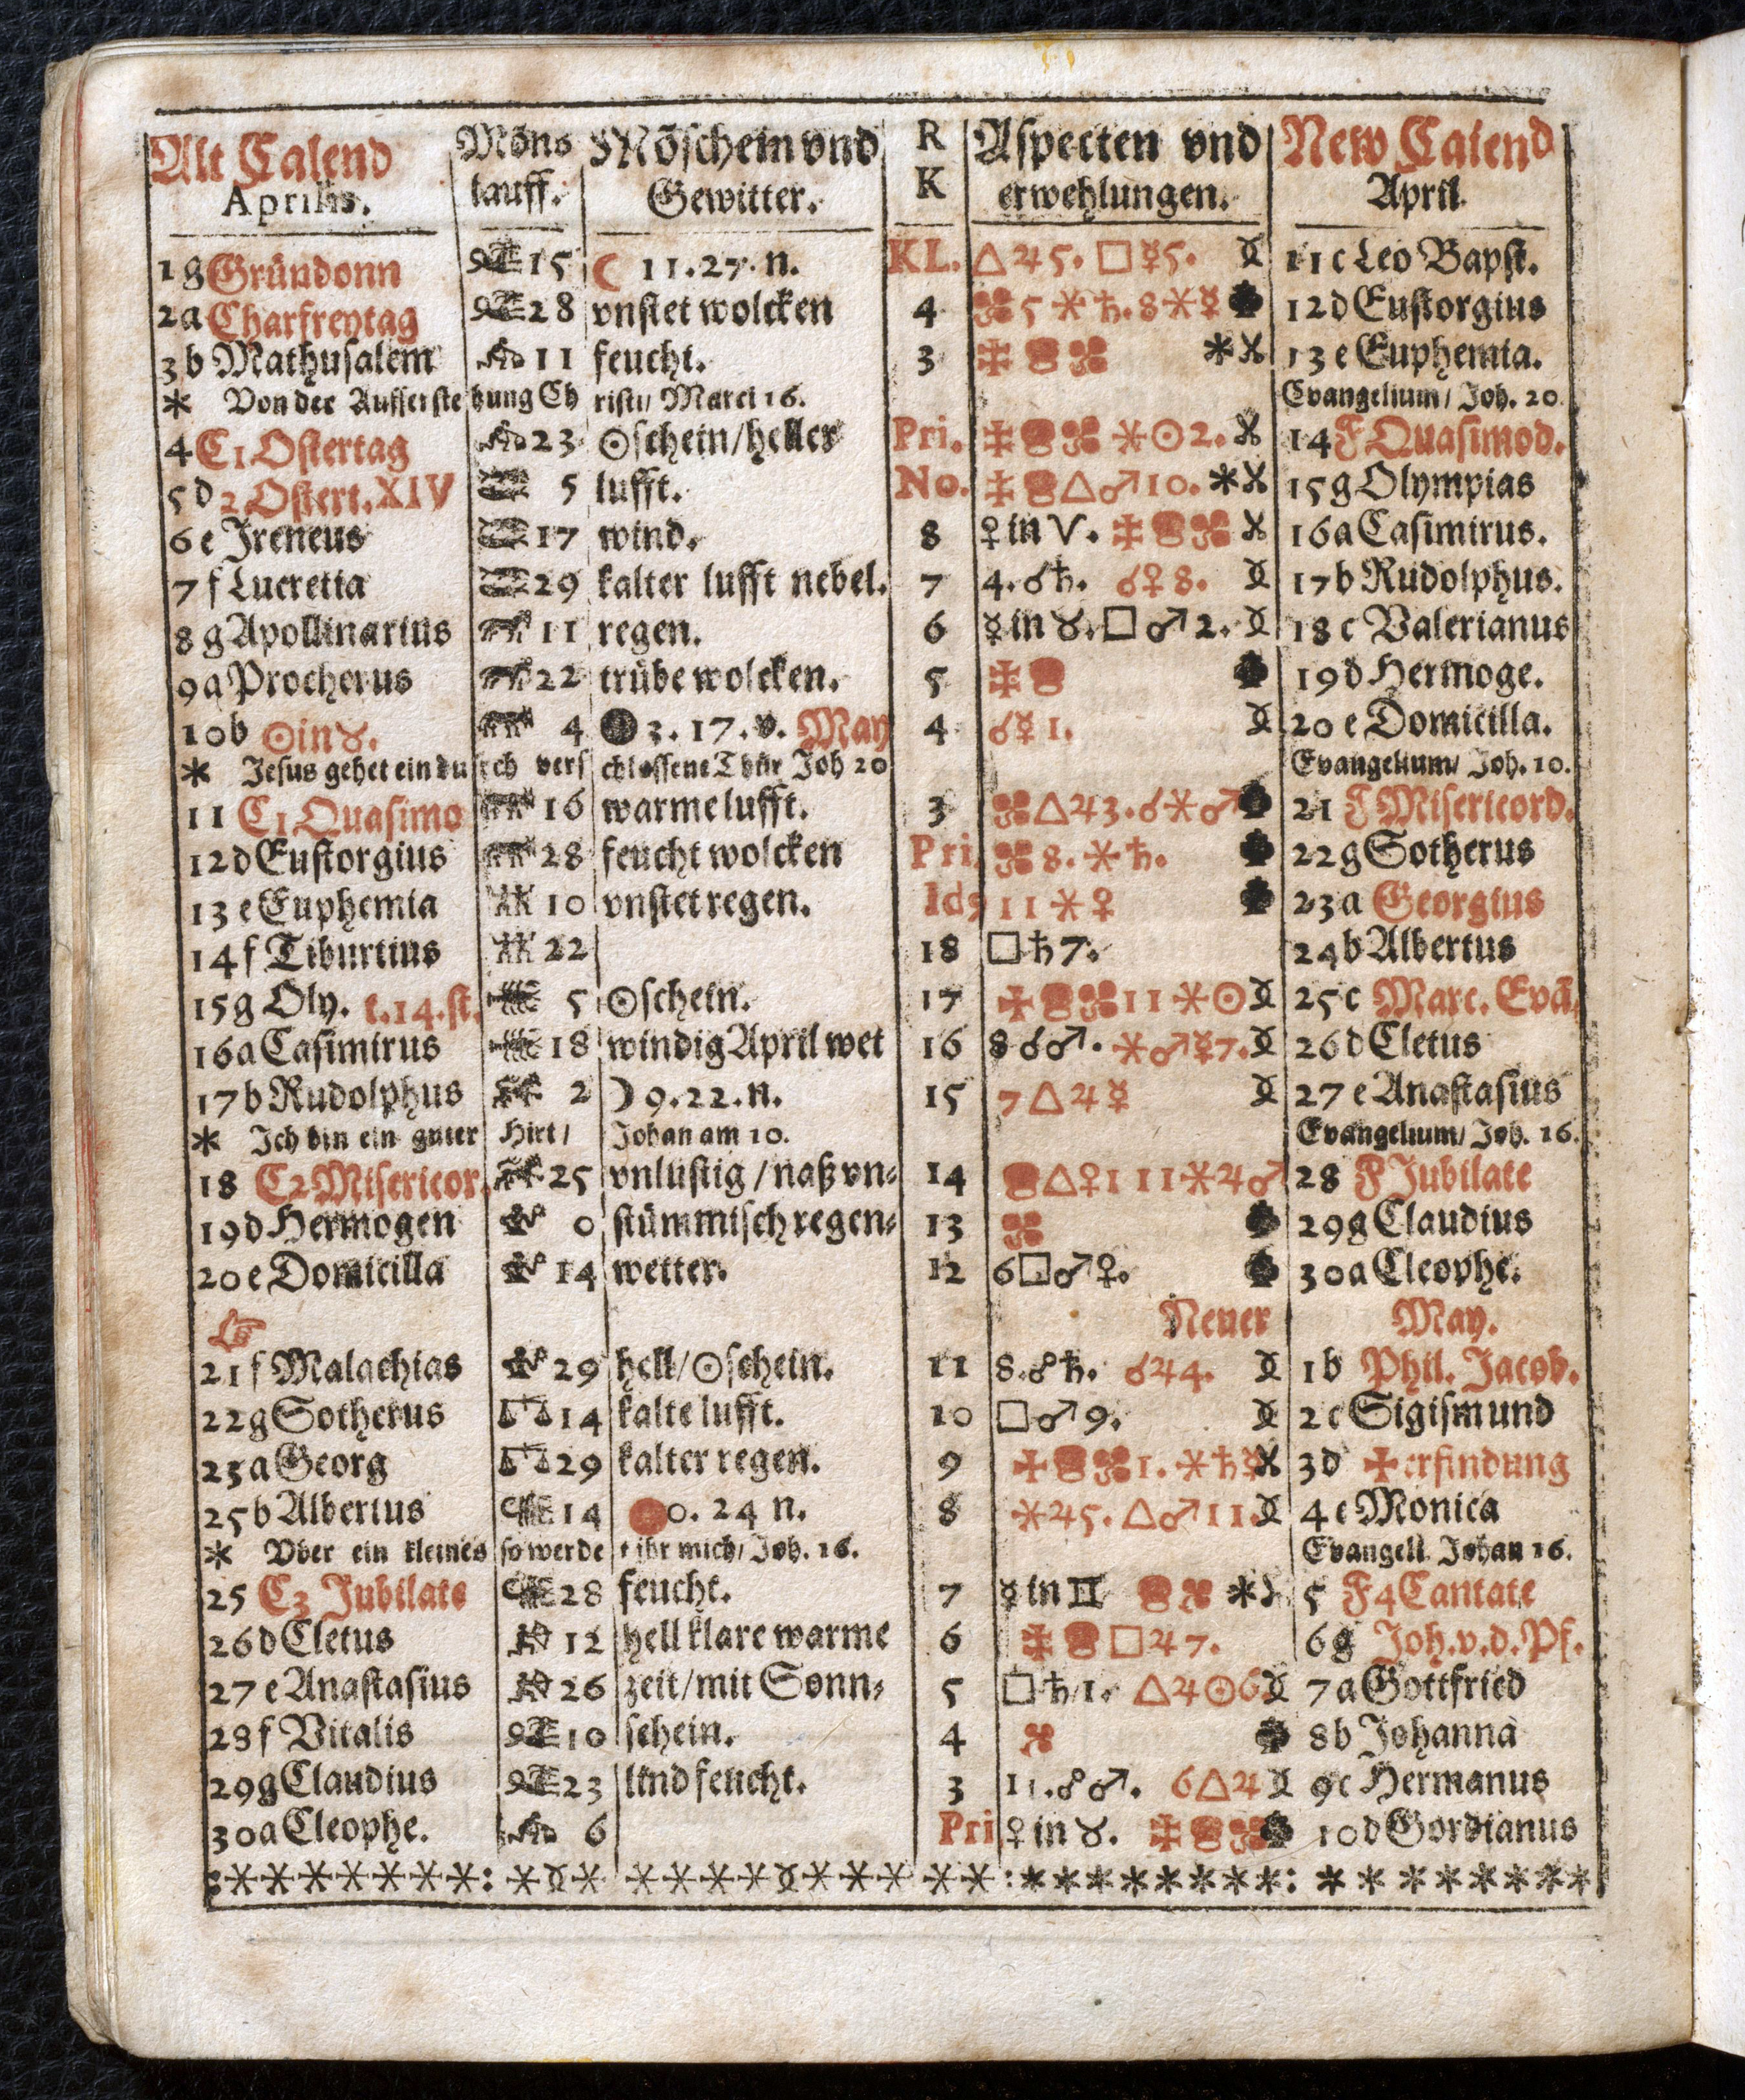 Alt Calend Möns Möschein vnd R Aspecten vnd New Calend
Aprilis. lauff. Gewitter. K erwehlungen. April.
1 g Gründonn 15 ☾ 11. 27. n. KL. △♃5. □☿5. 11 c Leo Bapst.
2 a Charfreytag 28 vnstet wolcken 4 5 ⚹♄. 8⚹☿ 12 d Eustorgius
3 b Mathusalem 11 feucht. 3 * 13 e Euphemia.
* Von der Aufferstehung Christi/ Marci 16. Evangelium/ Joh. 20.
4 C1 Ostertag 23 ☉schein/heller Pri. ⚹☉2. 14 F Quasimod.
5 d 2 Ostert. XIV 5 lufft. No. △♂10. * 15 g Olympias
6 e Ireneus 17 wind. 8 ♀in♈. 16 a Casimirus.
7 f Lucretia 29 kalter lufft nebel. 7 4. ☌♄. ☌♀8. 17 b Rudolphus.
8 g Apollinarius 11 regen. 6 ☿in♉. □♂2. 18 c Valerianus
9 a Procherus 22 trübe wolcken. 5 19 d Hermoge.
10 b ☉in♉. 4 ● 3. 17. v. May 4 ☌☿1. 20 e Domicilla.
* Jesus gehet ein durch verschlossene Thür Joh 20 Evangelium/ Joh. 10.
11 C1 Quasimo 16 warme lufft. 3 △♃3. ☌⚹♂ 21 F Misericord.
12 d Eustorgius 28 feucht wolcken Pri. 8. ⚹♄. 22 g Sotherus
13 e Euphemia 10 vnstet regen. Id9 11⚹♀ 23 a Georgius
14 f Tiburtius 22 18 □♄7. 24 b Albertus
15 g Oly. t. 14. st. 5 ☉schein. 17 11⚹☉ 25 c Marc. Evā.
16 a Casimirus 18 windig April wet 16 8☌♂. ⚹♂☿7. 26 d Cletus
17 b Rudolphus 2 ☽ 9. 22. n. 15 7△♃☿ 27 e Anastasius
* Ich bin ein guter Hirt/ Johan am 10. Evangelium/ Joh. 16.
18 C2 Misericor. 25 vnlustig/naß vn⸗ 14 △♀1 11⚹♃♂ 28 F Jubilate
19 d Hermogen 0 stümmisch regen⸗ 13 29 g Claudius
20 e Domicilla 14 wetter. 12 6□♂♀. 30 a Cleophe.
☞ Neuer May.
21 f Malachias 29 hell/☉schein. 11 8. ☍♄. ☌♃4. 1 b Phil. Jacob.
22 g Sotherus 14 kalte lufft. 10 □♂9. 2 c Sigismund
23 a Georg 29 kalter regen. 9 1. ⚹♄☿ 3 d ✠erfindung
25 b Albertus 14 0. 24 n. 8 ⚹♃5. △♂11. 4 e Monica
* Vber ein kleines so werdet ihr mich/ Joh. 16. Evangeli. Johan 16.
25 C3 Jubilate 28 feucht. 7 ☿in♊ * 5 F4 Cantate
26 d Cletus 12 hell klare warme 6 □♃7. 6 g Joh. v. d. Pf.
27 e Anastasius 26 zeit/mit Sonn⸗ 5 □♄1. △♃☉6. 7 a Gottfried
28 f Vitalis 10 schein. 4 8 b Johanna
29 g Claudius 23 lind feucht. 3 11. ☍♂. 6△♃ 9 c Hermanus
30 a Cleophe. 6 Pri ♀in♉. 10 d Gordianus